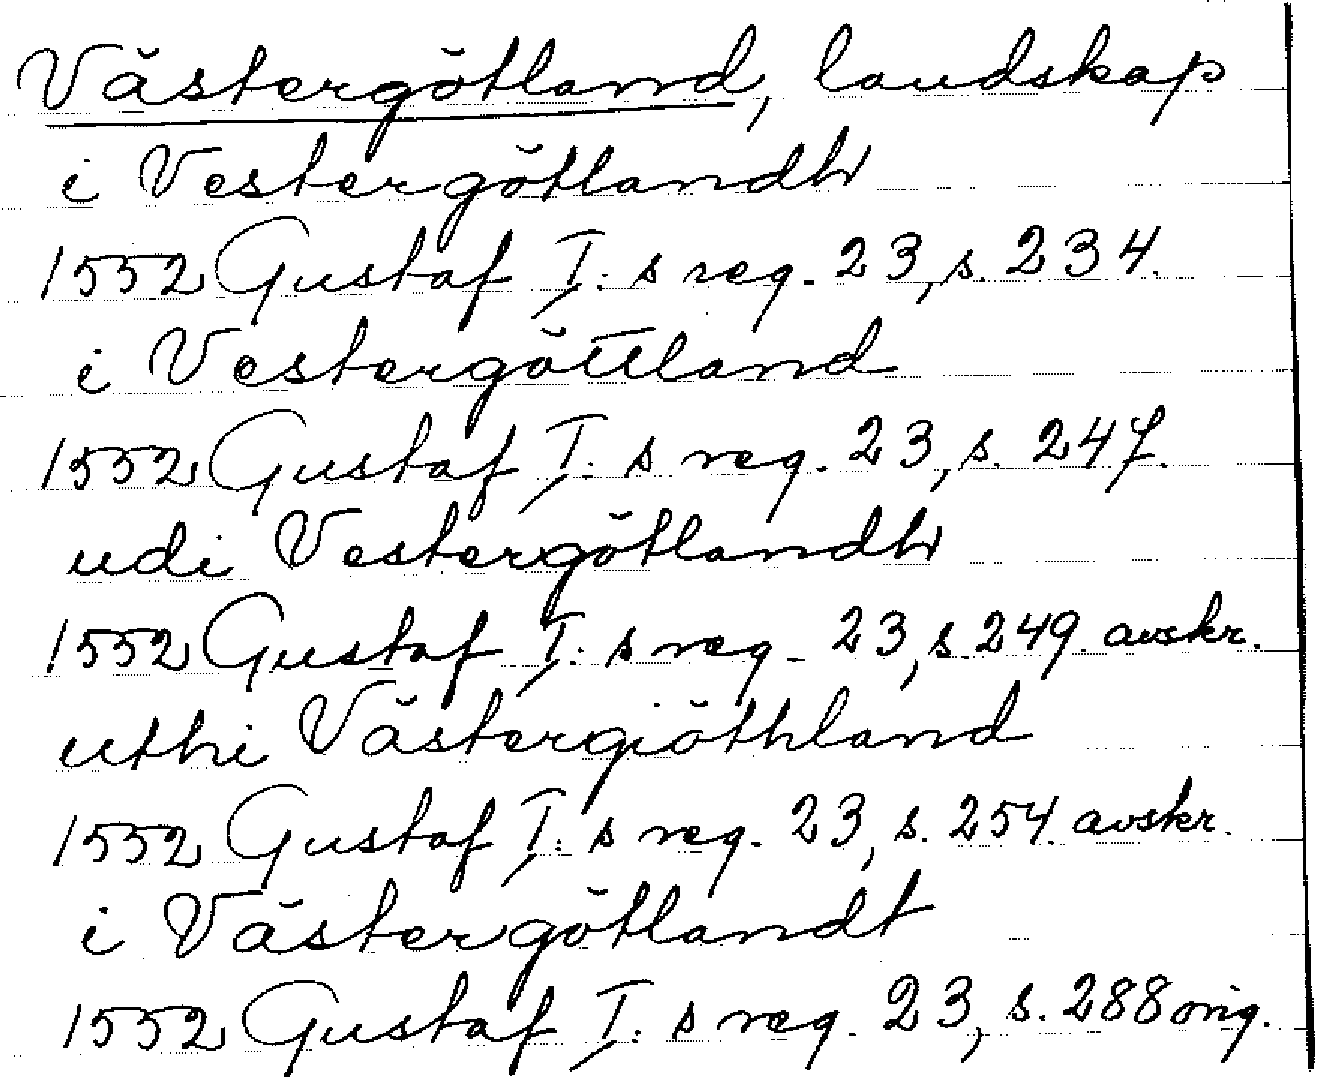 Västergötland, landskap
i Vestergötlandh
1552 Gustaf I: s reg. 23, s. 234.
i Vestergöttland
1552 Gustaf I: s reg. 23, s. 247.
udi Vestergötlandh
1552 Gustaf I: s reg. 23, s. 249. avskr.
uthi Västergiöthland
1552 Gustaf I: s reg. 23, s. 254. avskr.
i Västergötlandt
1552 Gustaf I: s reg. 23, s. 288 orig.